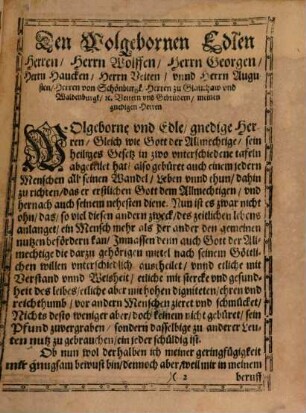 Den Wolgebornen Edlen
Herren / Herrn Wolffen / Herrn Georgen /
Herrn Haucken / Herrn Veiten / vnnd Herrn Augu
sten / Herren von Schönburgk / Herren zu Glauchaw vnd
Waldenburgk / ꝛc. Vettern vnd Gebrüdern / meinen
gnedigen Herren
WOlgeborne vnd Edle / gnedige Her
ren / Gleich wie Gott der Allmechtige / sein
heiliges Gesetz in zwo vnterschiedene tafeln
abgetheilet hat / also gebüret auch einem jedern
Menschen all seinen Wandel / Leben vnnd thun / dahin
zu richten / das er erstlichen Gott dem Allmechtigen / vnd
hernach auch seinem nehesten diene. Nun ist es zwar nicht
ohn / das / so viel diesen andern zweck / des zeitlichen lebens
anlanget / ein Mensch mehr als der ander den gemeinen
nutzen befördern kan / Inmassen denn auch Gott der All
mechtige die darzu gehörigen mittel nach seinem Göttli
chen willen vnterschiedlich austheilet / vnnd etliche mit
Verstand vnnd Weisheit / etliche mit stercke vnd gesund
heit des leibes / etliche aber mit hohen digniteten / ehren vnd
reichthumb / vor andern Menschen zieret vnd schmücket /
Nichts desto weniger aber / doch keinem nicht gebüret / sein
Pfund zuvergraben / sondern dasselbige zu anderer Leu
ten nutz zu gebrauchen / ein jeder schüldig ist.
Ob nun wol der halben ich meiner geringfügigkeit
mir gnugsam bewust bin / dennoch aber / weil mir in meinem
2 beruff